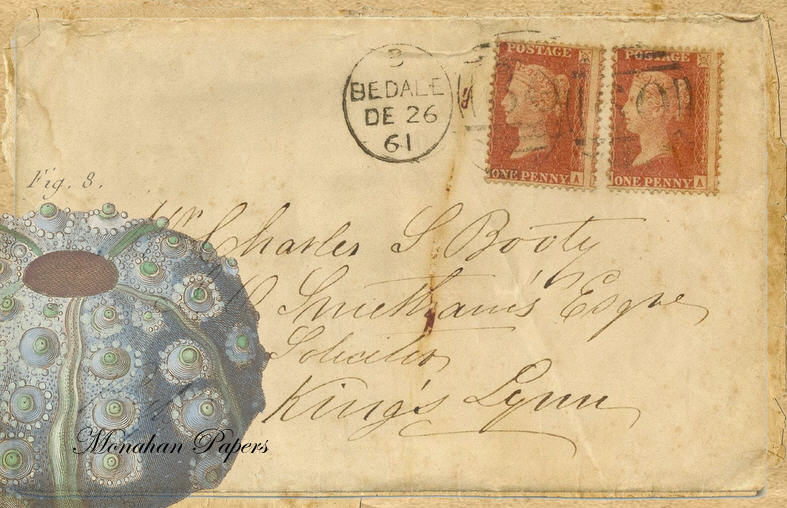 POSTAGE POSTAGE
B
BEDALE
DE 26
61
ONE PENNY A ONE PENNY A
Fig. 8.
Mr Charles S Booty
Esqre
Solicitor
King's Lynn
Monahan Papers